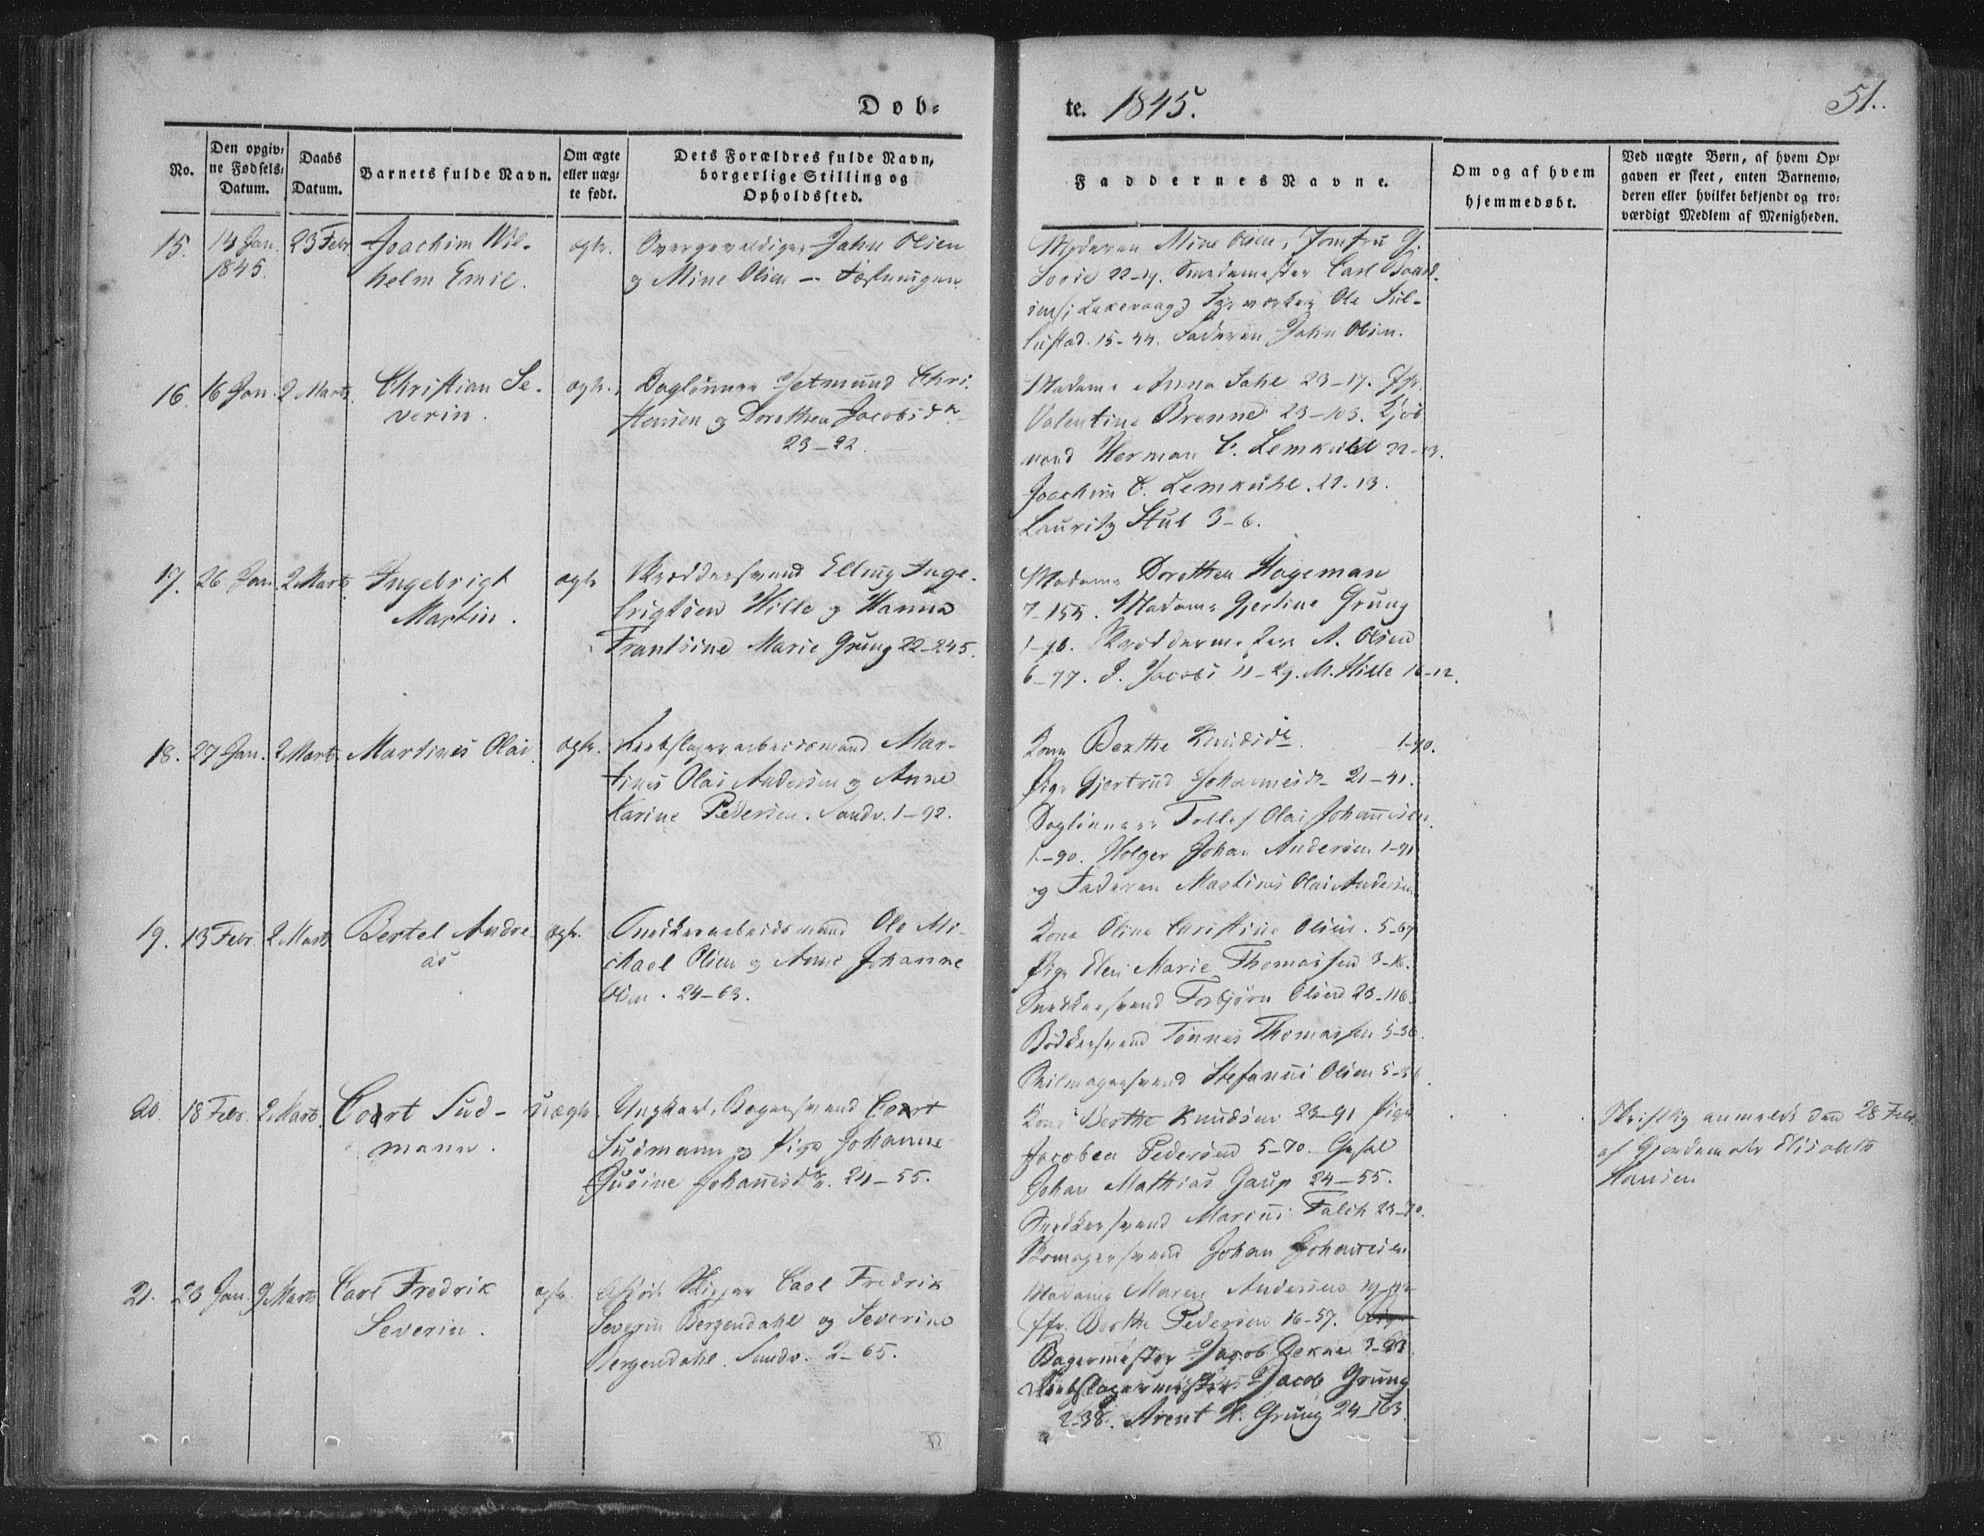 Døb-
te. 1845.
51.
No.
Den opgiv-
ne Fødsels-
Datum.
Daabs
Datum.
Barnets fulde Navn.
Om ægte
eller uæg-
te født.
Dets Forældres fulde Navn,
borgerlige Stilling og
Opholdssted.
Faddernes Navne.
Om og af hvem
hjemmedøbt.
Ved uægte Børn, af hvem Op-
gaven er skeet, enten Barnemo-
deren eller hvilket bekjendt og tro-
værdigt Medlem af Menigheden.
15. 14 Jan. 23 Febr Joachim Wil-
1845. helm Emil.
ægte.
Overgevaldiger John Olsen
og Mine Olsen — Fæstningen.
Moderen Mine Olsen, Jomfru G.
22-19. Smedemester Carl
Laxevaag, Fyrverker Ole
15-44. Faderen John Olsen.
16. 16 Jan. 2 Marts. Christian Se-
verin.
ægte.
Daglønner Jetmund Chri-
stensen og Dorothea Jacobsdr.
23-22.
Madame Anna 23-17. Jfr.
Valentine Brenne 23-103. Kjøb
mand Herman C. Lemkuhl 22-13.
Joachim C. Lemkuhl. 22-13.
Lauritz Stub 3-6.
17. 26 Jan. 2 Marts. Ingebrigt
Martin.
ægte
Skræddersvend Elling Inge-
brigtsen Hille og Hanna
Frantsine Marie Grung 22-245.
Madame Dorothea Hageman
7-155. Madame Gjertine Grung
Skræddermester A. Olsen
6-77. J. Jacobs 11-29. M. Hille 16-12.
18. 27 Jan. 2 Marts. Martines Olai
ægte.
Reebslagerarbeidsmand Mar-
tines Olai Andersen og Anne
Karine Pedersen. Sandv. 1-92.
Kone Berthe Knudsdr. 1-90.
Pige Gjertrud Johannesdr 21-41.
Daglønner Tollef Olai Johannesen
1-90. Holger Johan Andersen 1-91
og Faderen Martines Olai Andersen
19. 13 Febr. 2 Marts Bertel Andre
as
ægte.
Snedkerarbeidsmand Ole Mi-
chael Olsen og Anne Johanne
Olsen. 24-63.
Kone Oline Christine Olsen. 5-67
Pige Elen Marie Thomassen 3-16.
Snedkersvend Torbjørn Olsen 23-116.
Bødkersvend Tønnes Thomassen 5-36.
Seilmagersvend Stefanus Olsen
20. 18 Febr. 2 Marts. Coert Sud-
mann.
uægte.
Ungkarl, Bagersvend Coert
Sudmann og Pige Johanne
Gusine Johannesdr. 24-55.
Kone Berthe Knudsen 23-91 Pige
Jacobea Pedersen 5-70. Gesel
Johan Mathias Gaup 24-55.
Snedkersvend Marius Falch 23-70.
Skomagersvend Johan Johannesen
Skriftlig anmeldt den 28 Febr.
af Gjordemoder Elisabeth
Hansen
21. 23 Jan. 9 Marts Carl Fredrik
Severin.
ægte.
Skipper Carl Fredrik
Severin Bergendahl og Severine
Bergendahl. Sandv. 2-65.
Madame Maren Andersen
Jfr. Berthe Pedersen 16-57.
Bagermester Jacob Dekne
Reebslagermester Jacob Grung
2-38. Arent H. Grung 24-163.